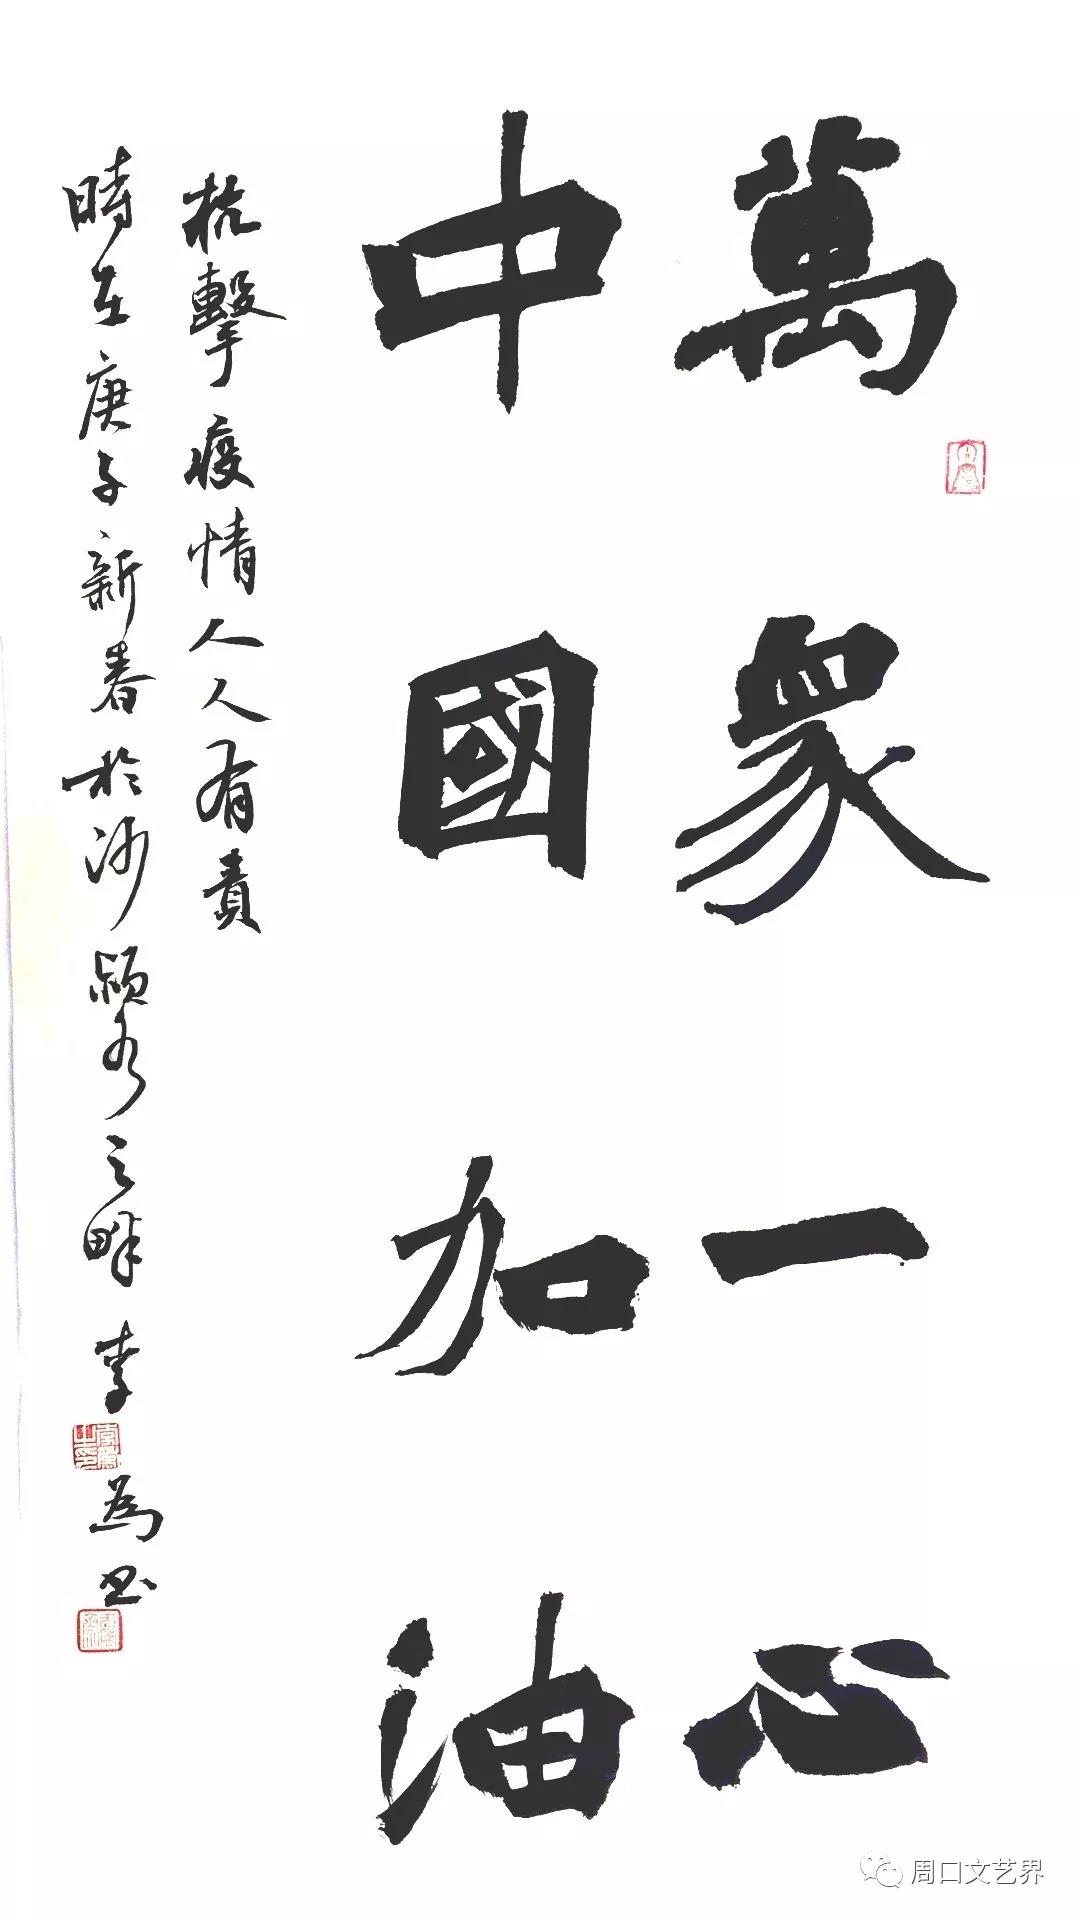 萬眾一心
中國加油
抗擊疫情人人有責
時在庚子新春於沙潁水之畔李為书
周口文艺界